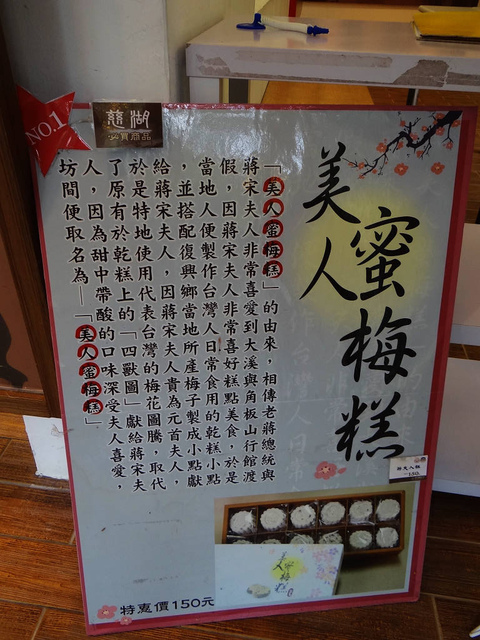 NO.1
慈湖
美人
蜜梅糕
「美人蜜梅糕」的由來，相傳老蔣總統與
蔣宋夫人非常喜愛到大溪與角板山行館渡
假，因蔣宋夫人非常喜好糕點美食，於是
當地人便製作台灣人日常食用的乾糕小點
，並搭配復興鄉當地所產梅子製成小點獻
給蔣宋夫人，因蔣宋夫人貴為元首夫人，
於是特地使用代表台灣的梅花圖騰，取代
了原有於乾糕上的「四獸圖」獻給蔣宋夫
人，因為甜中帶酸的口味深受夫人喜愛，
坊間便取名為—「美人蜜梅糕」
美人
蜜梅糕
特惠價150元